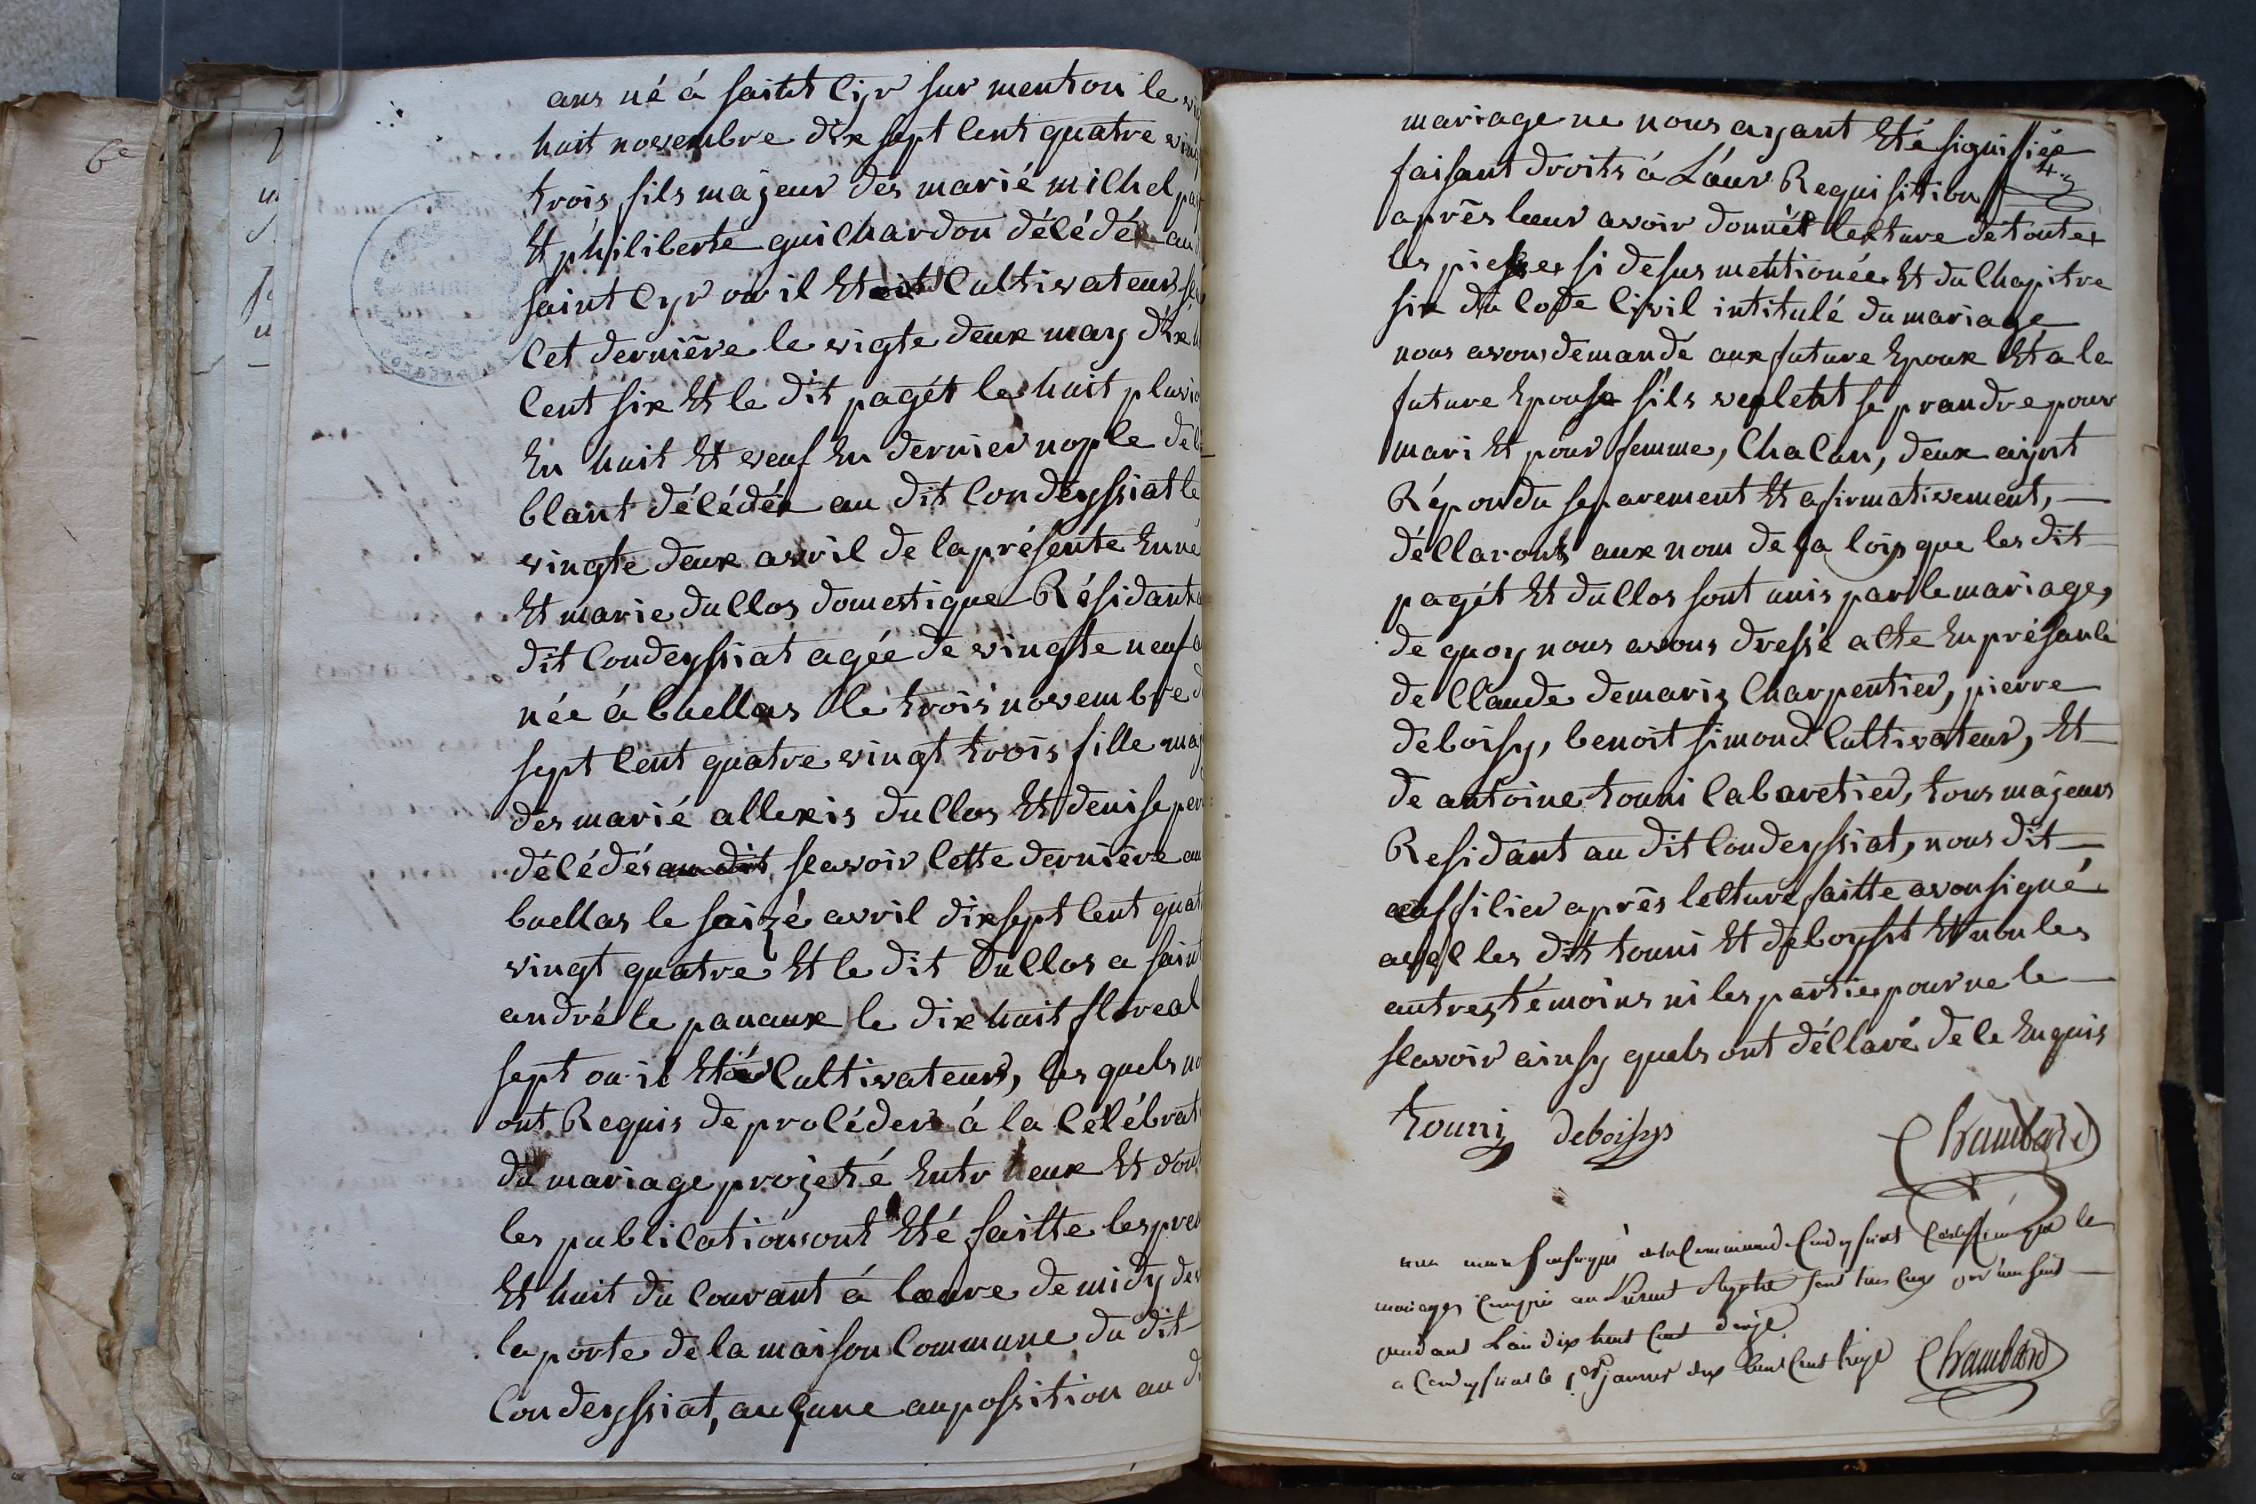 6e
ans né á saint Cyr sur menton le
huit novembre dix sept Cent quatre ving
trois, fils majeur des marié michel pag
Et philiberte guichardon décédée au
saint Cyr ou il Etoit Cultivateur
Cet dernière le vigte deux may dix
Cent six Et le dit pagét le huit pluvio
En huit Et veuf En dernier nople de
blant décédée au dit Condeyssiat le
vingte deux avril de la présente Enné
Et marie duclos domestique Résidante
dit Condeyssiat agée de vingte neuf a
née á buellas le trois novembre d
sept Cent quatre vingt trois fille maj
des marié allexis duclos Et denise per
décédés au dit scavoir Cette dernière au
buellas le saizé avril dix sept Cent quat
vingt quatre Et le dit duclos a saint
andré le panaux le dix huit floreal
sept ou il Etoit Cultivateur, les quels no
ont Requis de procéder á la Célébrat
du mariage projeté Entr heux Et dont
les publications ont Eté faitte les prem
Et huit du Courant á loeure de midy dev
la porte de la maison Commune du dit
Condeyssiat, auçune auposition au d
mariage ne nous ayant Eté signifiée
faisant droits á Léeur Requisition
après loeur avoir donnét lecture de toutes
les piesses si desus mentionées Et du Chapitre
six du Code Civil intitulé du mariage
nous avons demandé aux future Epoux Et a la
future Epouse s'ils veulent se prandre pour
mari Et pour femme, Chacun, deux ayant
Répondu separement Et afirmativement,
déllaronts aux nom de la loix que les dit
pagét Et duclos sont unis par le mariage,
de quoy nous avons dressé acte En présance
de Claude demariz Charpentier, pierre
deboissy, benoit simond Cultivateur, Et
de antoine touni Cabaretier, tous majeurs
Residant au dit Condeyssiat, nous dit
aufficier après lecture faitte avon signé
avec les dit touni Et deboysst Et non les
autres témoins ni les partie pour ne le
scavoir ainsy quels ont déclaré de ce Enquis
touni deboissy Chambard
mariages Compris au Présent
pendant L'an dix huit Cent douze
a Condeyssiat le 1er janvier dix huit Cent treize Chambard